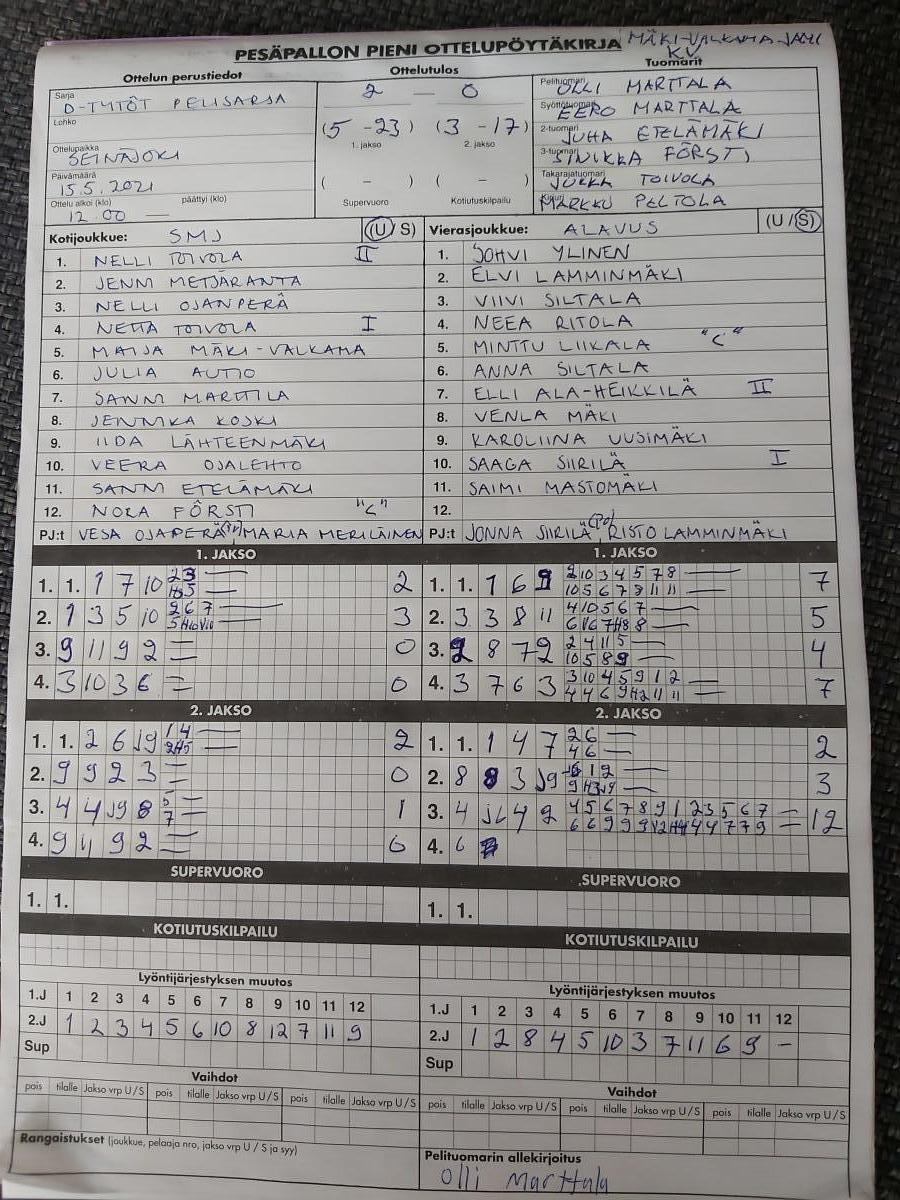 PESÄPALLON PIENI OTTELUPÖYTÄKIRJA MÄKI-VALKAMA JANI
KV
Ottelun perustiedot Ottelutulos Tuomarit
Sarja D-TYTÖT PELISARJA
Lohko
Ottelupaikka SEINÄJOKI
Päivämäärä 15.5.2021
Ottelu alkoi (klo) päättyi (klo)
12.00 —
2 — 0
(5 - 23) (3 - 17)
1. jakso 2. jakso
( - ) ( - )
Supervuoro Kotiutuskilpailu
Pelituomari OLLI MARTTALA
Syöttötuomari EERO MARTTALA
2-tuomari JUHA ETELÄMÄKI
3-tuomari SINIKKA FÖRSTI
Takarajatuomari JUKKA TOIVOLA
Kirjuri MARKKU PELTOLA
Kotijoukkue: SMJ (U/S)
1. NELLI TOIVOLA II
2. JENNI METSÄRANTA
3. NELLI OJANPERÄ
4. NETTA TOIVOLA I
5. MAIJA MÄKI-VALKAMA
6. JULIA AUTIO
7. SANNI MARTTILA
8. JENNIKA KOSKI
9. IIDA LÄHTEENMÄKI
10. VEERA OJALEHTO
11. SANNI ETELÄMÄKI
12. NORA FÖRSTI "C"
PJ:t VESA OJAPERÄ MARIA MERILÄINEN
Vierasjoukkue: ALAVUS (U/S)
1. JOHVI YLINEN
2. ELVI LAMMINMÄKI
3. VIIVI SILTALA
4. NEEA RITOLA
5. MINTTU LIIKALA "C"
6. ANNA SILTALA
7. ELLI ALA-HEIKKILÄ II
8. VENLA MÄKI
9. KAROLIINA UUSIMÄKI
10. SAAGA SIIRILÄ I
11. SAIMI MASTOMÄKI
12.
PJ:t JONNA SIIRILÄ (PJ) RISTO LAMMINMÄKI
1. JAKSO
1. 1. 1 7 10 2
2. 1 3 5 10 2 6 7 3
3. 9 11 9 2 0
4. 3 10 3 6 0
1. JAKSO
1. 1. 1 6 9 2 10 3 4 5 7 8 7
10 5 6 7 8 11 11
2. 3 3 8 11 4 10 5 6 7 5
3. 2 8 7 2 4 11 5 4
10 5 8 9
4. 3 7 6 3 3 10 4 5 9 1 2 7
2. JAKSO
1. 1. 2 6 J9 1 4 2
2. 9 9 2 3 0
3. 4 4 J9 8 5 1
7
4. 9 11 9 2 0
2. JAKSO
1. 1. 1 4 7 2 6 2
4 6
2. 8 8 3 J9 3
3. 4 4 2 4 5 6 7 8 9 1 2 3 5 6 7 12
4. 6
SUPERVUORO
1. 1.
SUPERVUORO
1. 1.
KOTIUTUSKILPAILU
KOTIUTUSKILPAILU
Lyöntijärjestyksen muutos
1.J 1 2 3 4 5 6 7 8 9 10 11 12
2.J 1 2 3 4 5 6 10 8 12 7 11 9
Sup
Lyöntijärjestyksen muutos
1.J 1 2 3 4 5 6 7 8 9 10 11 12
2.J 1 2 8 4 5 10 3 7 11 6 9 -
Sup
Vaihdot
pois tilalle Jakso vrp U/S pois tilalle Jakso vrp U/S pois tilalle Jakso vrp U/S
Vaihdot
pois tilalle Jakso vrp U/S pois tilalle Jakso vrp U/S pois tilalle Jakso vrp U/S
Rangaistukset (joukkue, pelaaja nro, jakso vrp U / S ja syy)
Pelituomarin allekirjoitus
Olli Marttala